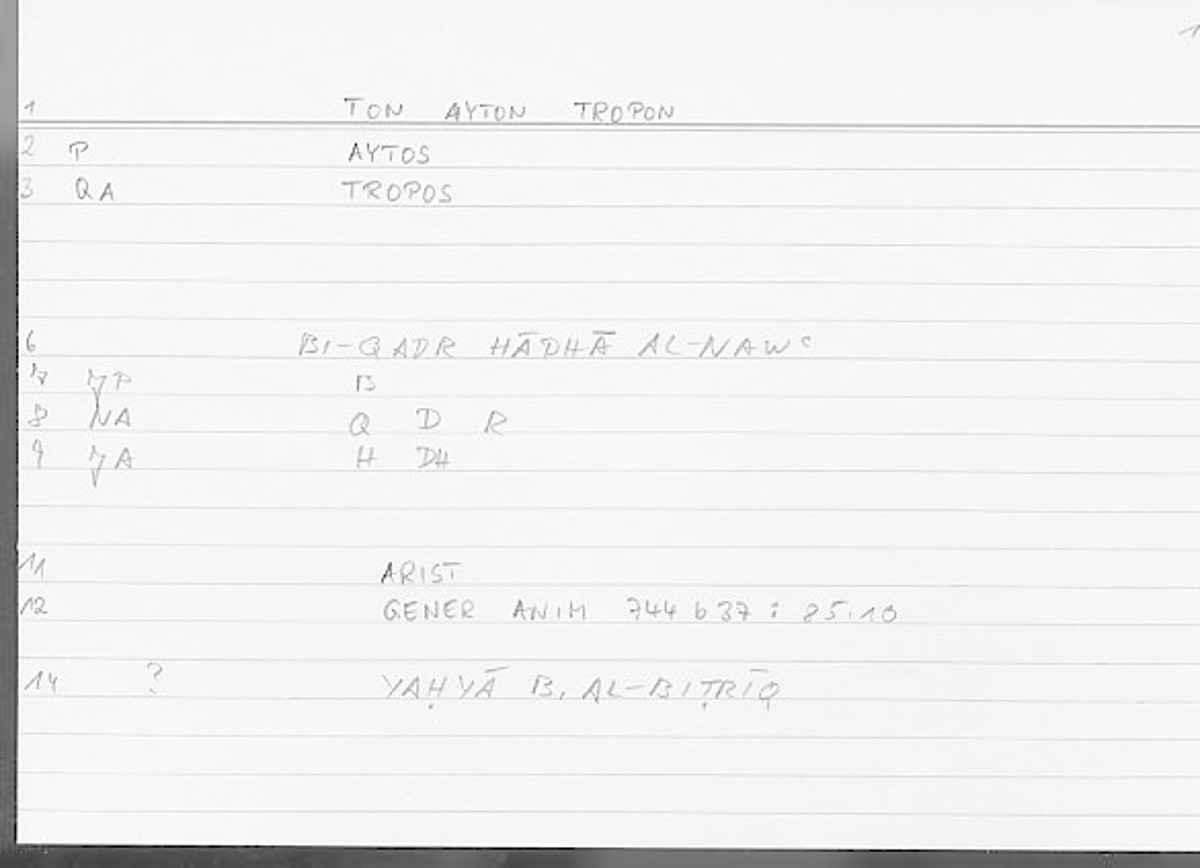 1
1 TON AYTON TROPON
2 P AYTOS
3 QA TROPOS
6 BI-QADR HĀDHĀ AL-NAWʿ
7 JP B
8 NA Q D R
9 JA H DH
11 ARIST
12 GENER ANIM 744 b 37 : 85.10
14 ? YAḤYĀ B. AL-BIṬRĪQ